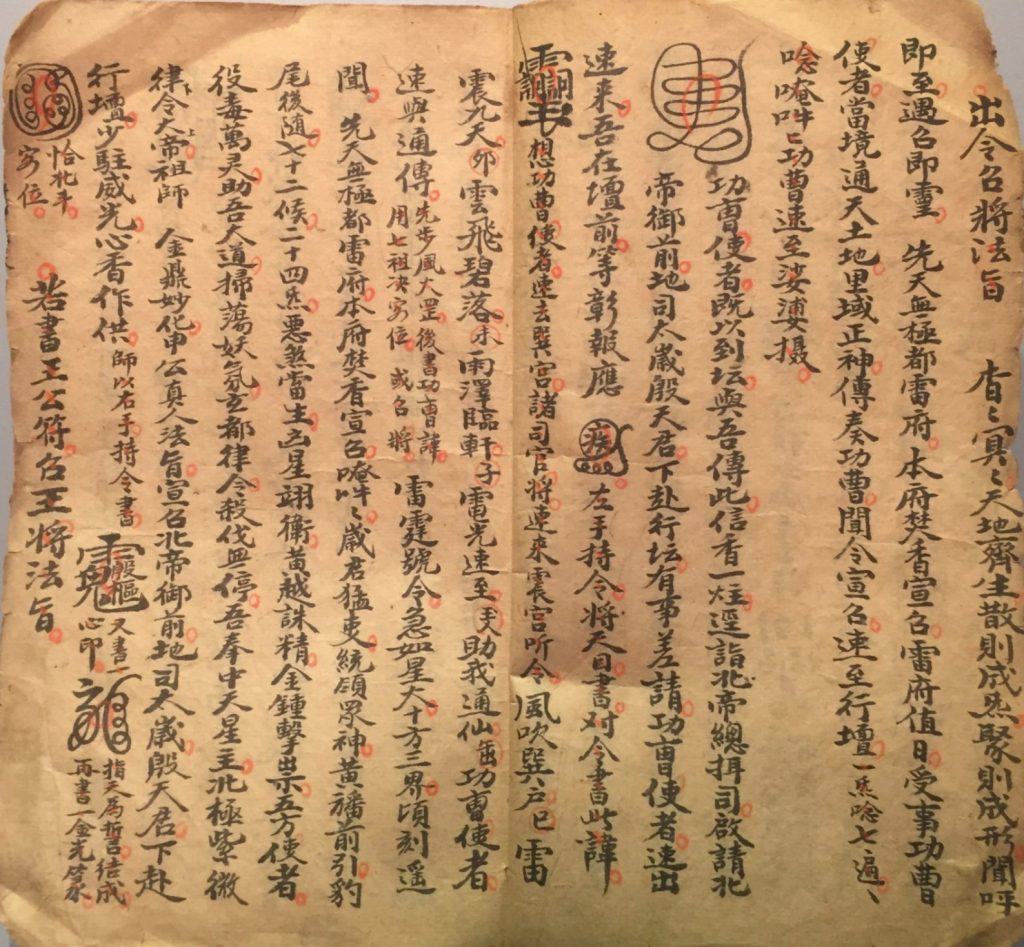 出令召將法旨　杳々冥々天地齊生散則成炁聚則成形聞呼
即至遇召即靈　先天無極都雷府本府焚香宣召雷府值日受事功曹
使者當境通天土地里域正神傳奏功曹聞令宣召速至行壇一炁唸七遍、
唸唵吽㠯功曹速至娑婆摄
功曹使者既以到坛與吾傳此信香一炷逕詣北帝總押司啟請北
帝御前地司太歲殷天君下赴行坛有事差請功曹使者速出
速來吾在壇前等彰報應　左手持令將天目書对令書此諱
想功曹使者速去巽宫諸司官将速來震宫听令風吹巽户巳雷
震九天夘雲飛碧落未雨澤臨軒子雷光速至助我通仙功曹使者
速與通傳先步風火罡後書功曹諱用七祖决穷位或召将雷霆號令急如星火十方三界頃刻遥
聞　先天無極都雷府本府焚香宣召唵吽々歲君猛吏統領眾神黄旛前引豹
尾後随七十二候二十四炁悪煞當生凶星翊衛黄越誅精金鍾擊出示五方使者
役毒萬灵助吾大道掃蕩妖氛玄都律令殺伐無停吾奉中天星主北極紫微
律令大帝祖師　金鼎妙化申公真人法旨宣召北帝御前地司太歲殷天君下赴
行壇少駐威光心香作供師以右手持令書又書一心印指天為誓结成再書一金光
恰北斗穷位　若書王公符召王将法旨